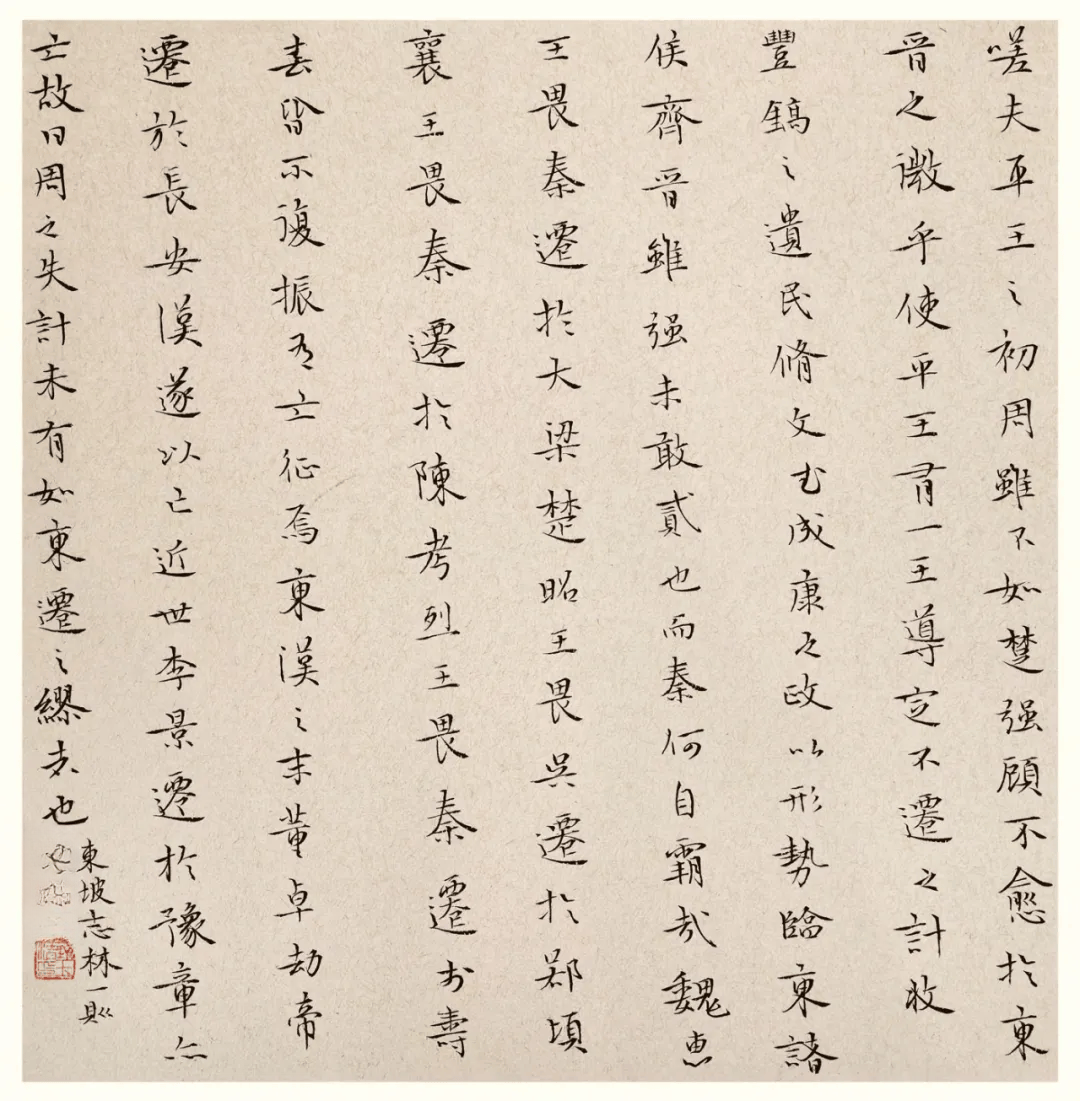 嗟夫平王之初周雖不如楚强顧不愈於東
晉之微乎使平王有一王導定不遷之計收
豐鎬之遺民脩文武成康之政以形勢臨東諸
侯齊晉雖强未敢貳也而秦何自霸哉魏惠
王畏秦遷於大梁楚昭王畏吳遷於鄀頃
襄王畏秦遷於陳考烈王畏秦遷於壽
春皆不復振有亡征焉東漢之末董卓劫帝
遷於長安漢遂以亡近世李景遷於豫章亦
亡故曰周之失計未有如東遷之繆者也
東坡志林一則